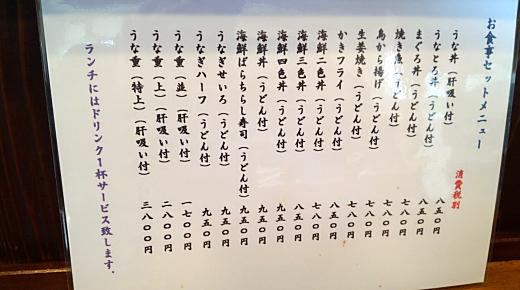 お食事セットメニュー
消費税別
うな丼（肝吸い付） 八五〇円
うなとろ丼（うどん付） 八五〇円
まぐろ丼（うどん付） 七八〇円
焼き魚（うどん付） 七八〇円
鳥から揚げ（うどん付） 七八〇円
生姜焼き（うどん付） 七八〇円
かきフライ（うどん付） 八五〇円
海鮮二色丼（うどん付） 七八〇円
海鮮三色丼（うどん付） 八五〇円
海鮮四色丼（うどん付） 九五〇円
海鮮丼（うどん付） 九五〇円
海鮮ばらちらし寿司（うどん付） 九五〇円
うなぎせいろ（うどん付） 九五〇円
うなぎハーフ（うどん付） 九五〇円
うな重（並）（肝吸い付） 一七〇〇円
うな重（上）（肝吸い付） 二八〇〇円
うな重（特上）（肝吸い付） 三八〇〇円
ランチにはドリンク一杯サービス致します．